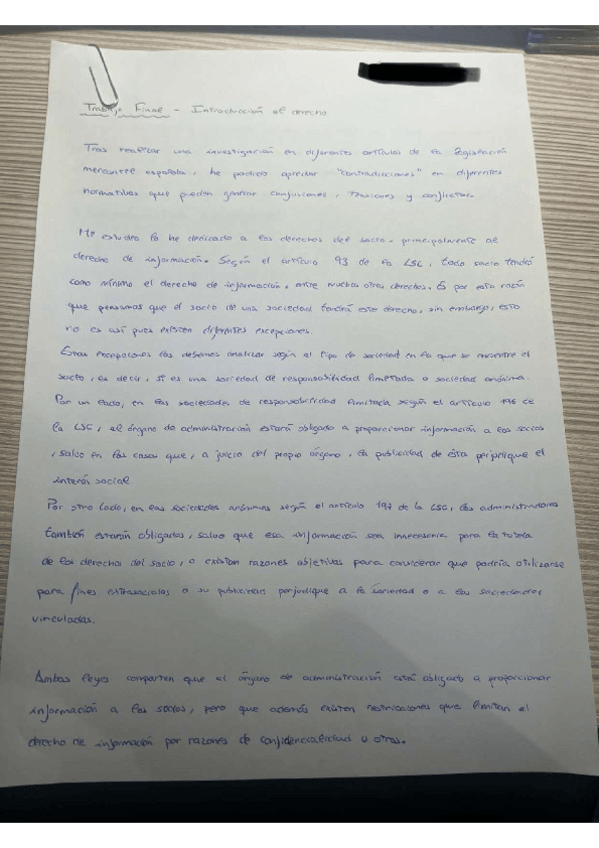 Trabajo Final - Introducción al derecho
Tras realizar una investigación en diferentes artículos de la legislación
mercantil española, he podido apreciar "contradicciones" en diferentes
normativas que pueden generar confusiones, tensiones y conflictos.
Mi estudio lo he dedicado a los derechos del socio, principalmente al
derecho de información. Según el artículo 93 de la LSC, todo socio tendrá
como mínimo el derecho de información, entre muchos otros derechos. Es por esta razón
que pensamos que el socio de una sociedad tendrá este derecho, sin embargo, esto
no es así pues existen diferentes excepciones.
Estas excepciones las debemos analizar según el tipo de sociedad en la que se encuentre el
socio, es decir, si es una sociedad de responsabilidad limitada o sociedad anónima.
Por un lado, en las sociedades de responsabilidad limitada según el artículo 196 de
la LSC, el órgano de administración estará obligado a proporcionar información a los socios
, salvo en los casos que, a juicio del propio órgano, la publicidad de ésta perjudique el
interés social.
Por otro lado, en las sociedades anónimas según el artículo 197 de la LSC, los administradores
también estarán obligados, salvo que esa información sea innecesaria para la tutela
de los derechos del socio, o existan razones objetivas para considerar que podría utilizarse
para fines extrasociales o su publicidad perjudique a la sociedad o a las sociedades
vinculadas.
Ambas leyes comparten que el órgano de administración está obligado a proporcionar
información a los socios, pero que además existen restricciones que limitan el
derecho de información por razones de confidencialidad u otras.